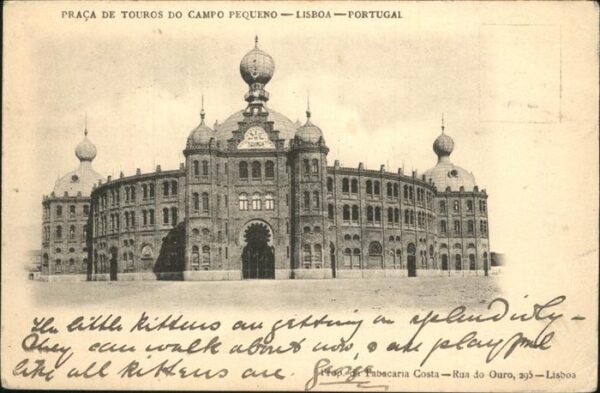 PRAÇA DE TOUROS DO CAMPO PEQUENO — LISBOA — PORTUGAL
The little kittens are getting on splendidly –
They can walk about now, & are playful
like all kittens are.
Prop. da Tabacaria Costa — Rua do Ouro, 295 — Lisboa